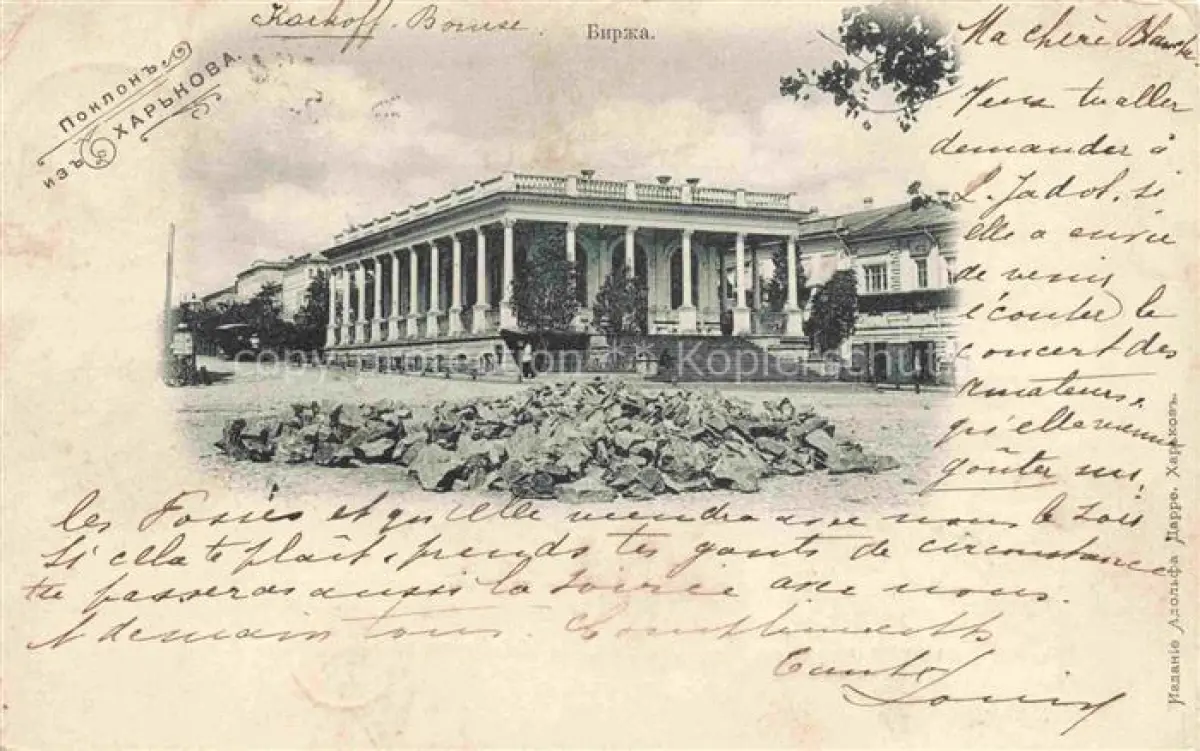 Karkoff. Bourse.
Биржа.
Поклонъ
изъ ХАРЬКОВА.
Ma chère
Veux tu aller
demander à
L. Jadot, si
elle a envie
de venir
écouter le
concert des
amateurs,
qu'elle vienne
goûter
les Fosses et qu'elle viendra avec nous le soir
si cela te plaît, prends tes gants de circonstance
tu passeras aussi la soirée avec nous.
A demain tous. Compliments
Tante Louise
Изданіе Адольфа Дарре, Харьковъ.
copyright protected Kopierschutz